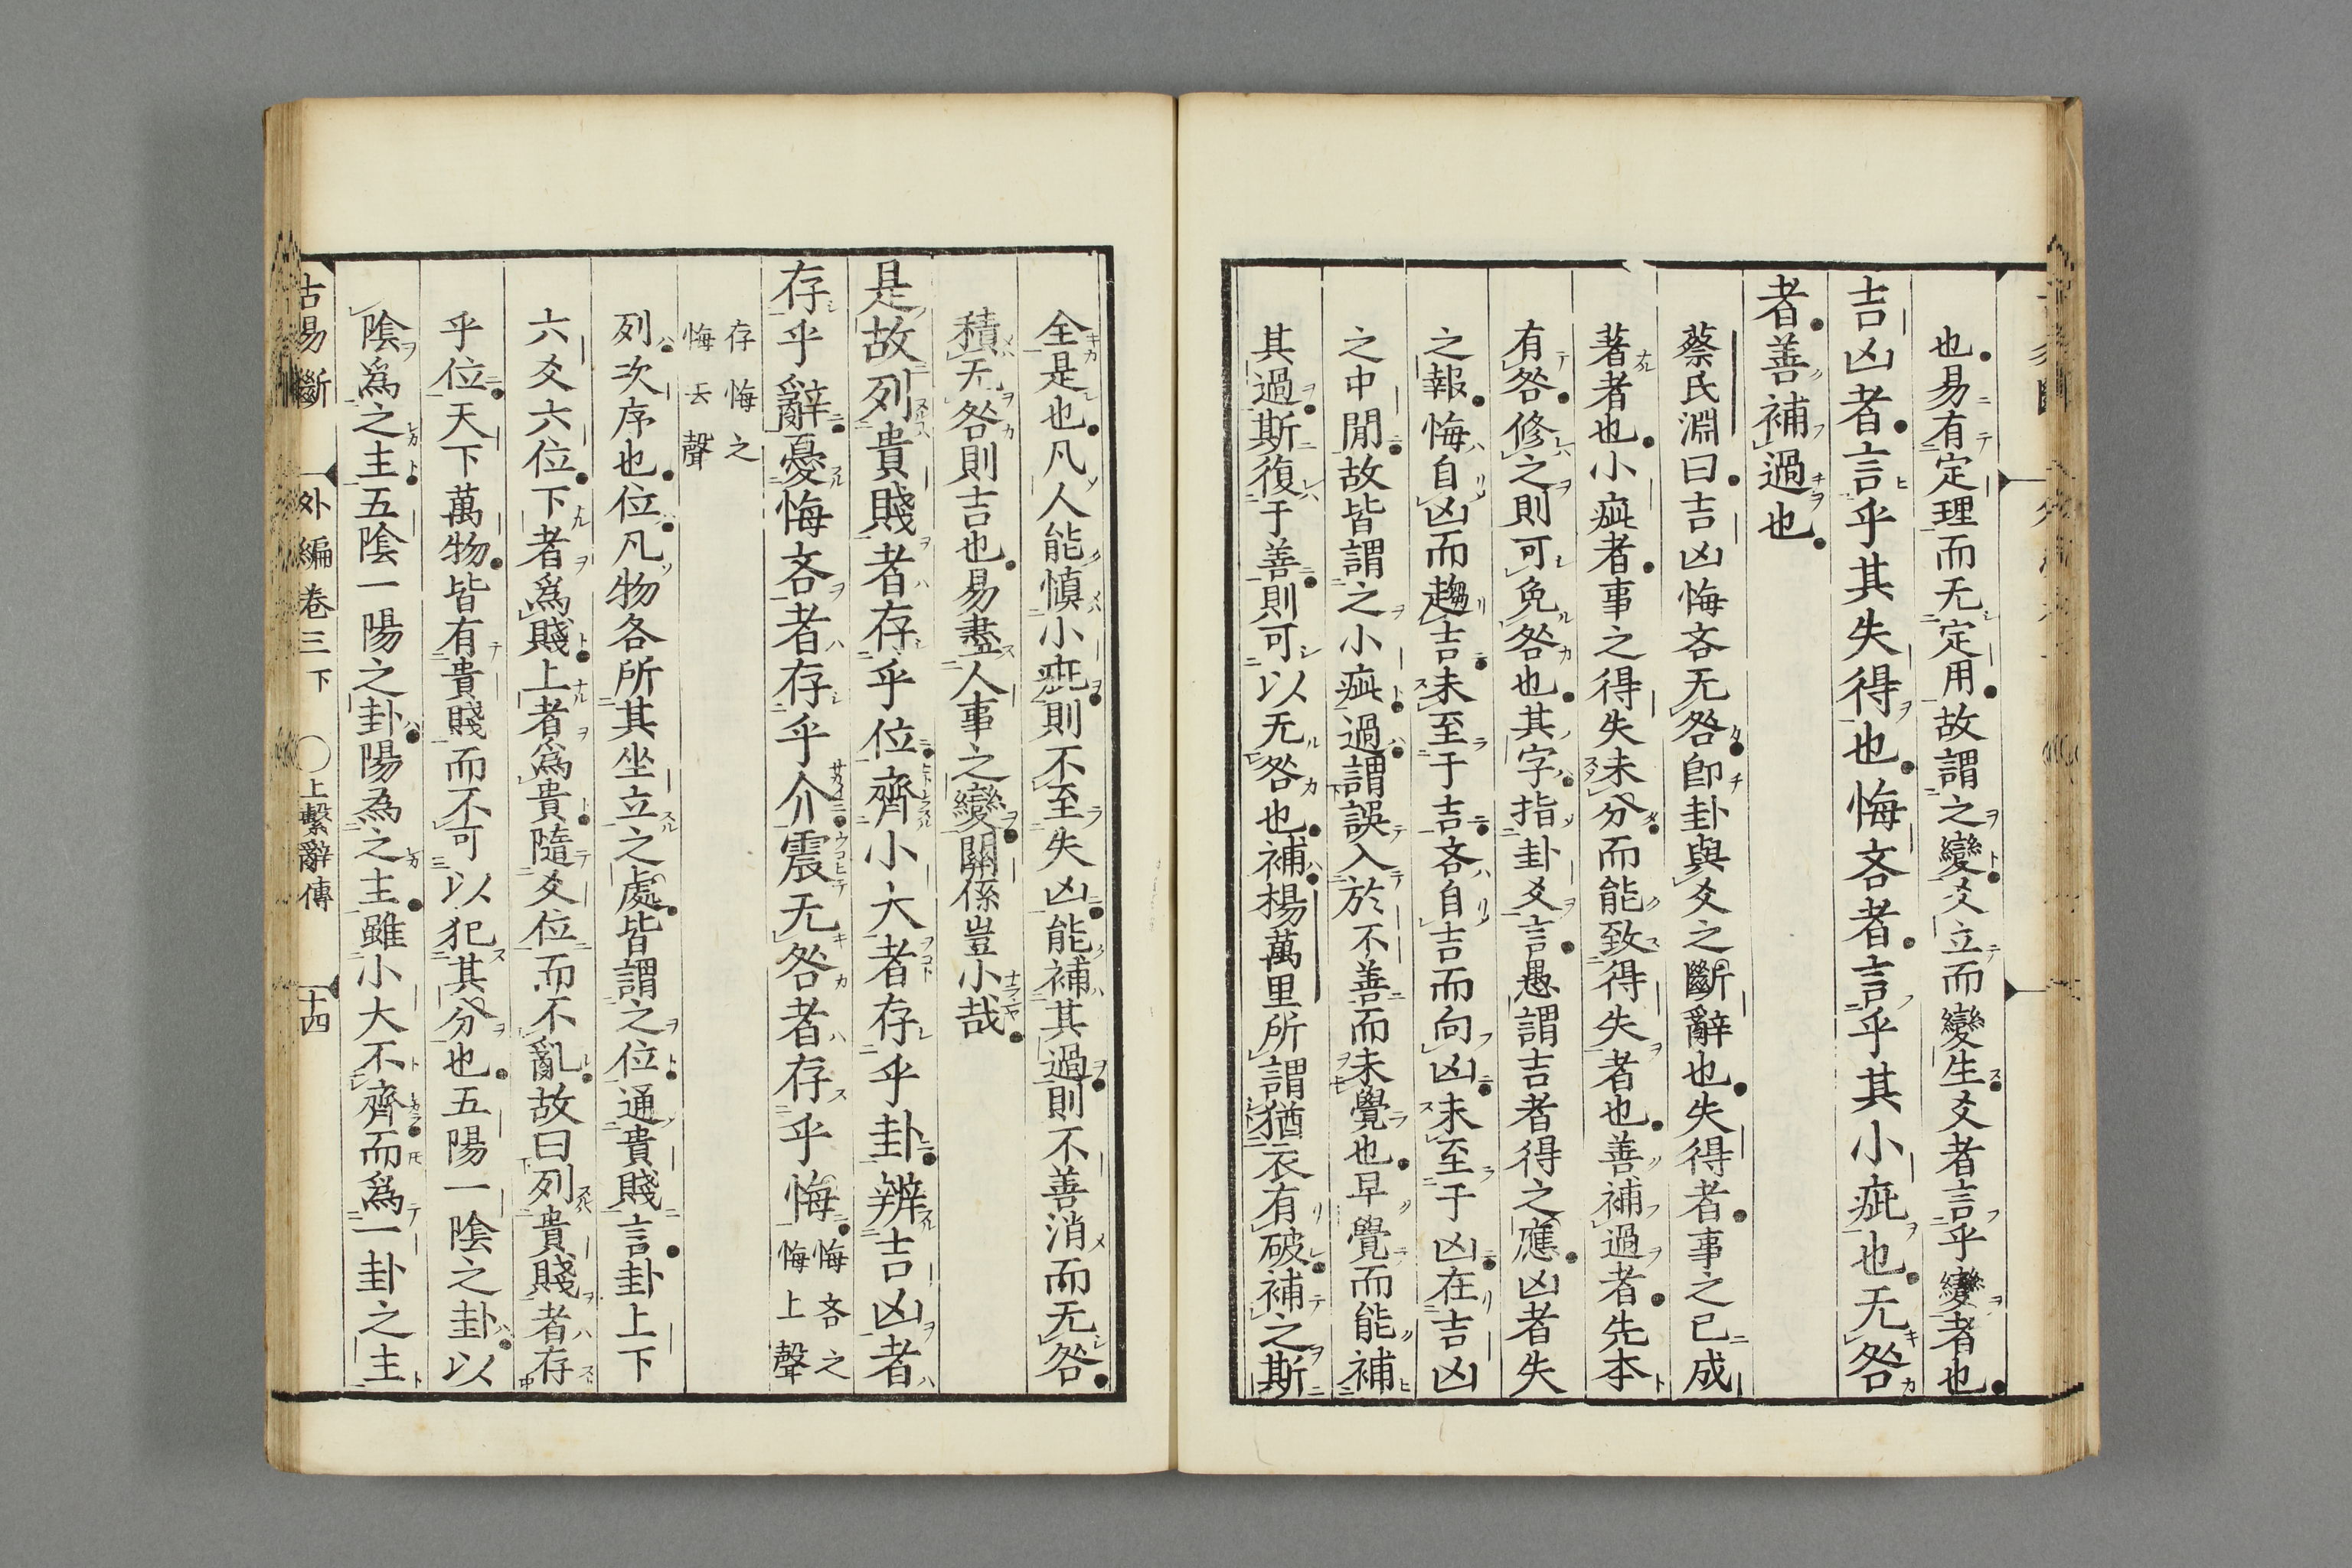 也易有定理而无定用故謂之變爻立而變生爻者言乎變者也
吉凶者言乎其失得也悔吝者言乎其小疵也无咎
者善補過也
蔡氏淵曰吉凶悔吝无咎卽卦與爻之斷辭也失得者事之已成
著者也小疵者事之得失未分而能致得失者也善補過者先本
有咎修之則可免咎也其字指卦爻言愚謂吉者得之應凶者失
之報悔自凶而趨吉未至于吉吝自吉而向凶未至于凶在吉凶
之中閒故皆謂之小疵過謂誤入於不善而未覺也早覺而能補
其過斯復于善則可以无咎也補楊萬里所謂猶衣有破補之斯
全是也凡人能愼小疵則不至失凶能補其過則不善消而无咎
積无咎則吉也易盡人事之變關係豈小哉
是故列貴賤者存乎位齊小大者存乎卦辨吉凶者
存乎辭憂悔吝者存乎介震无咎者存乎悔 悔吝之
悔上聲
存悔之
悔去聲
列次序也位凡物各所其坐立之處皆謂之位通貴賤言卦上下
六爻六位下者爲賤上者爲貴隨爻位而不亂故曰列貴賤者存
乎位天下萬物皆有貴賤而不可以犯其分也五陽一陰之卦以
陰爲之主五陰一陽之卦陽為之主雖小大不齊而爲一卦之主
古易斷 外編卷三下 ○上繫辭傳 十四